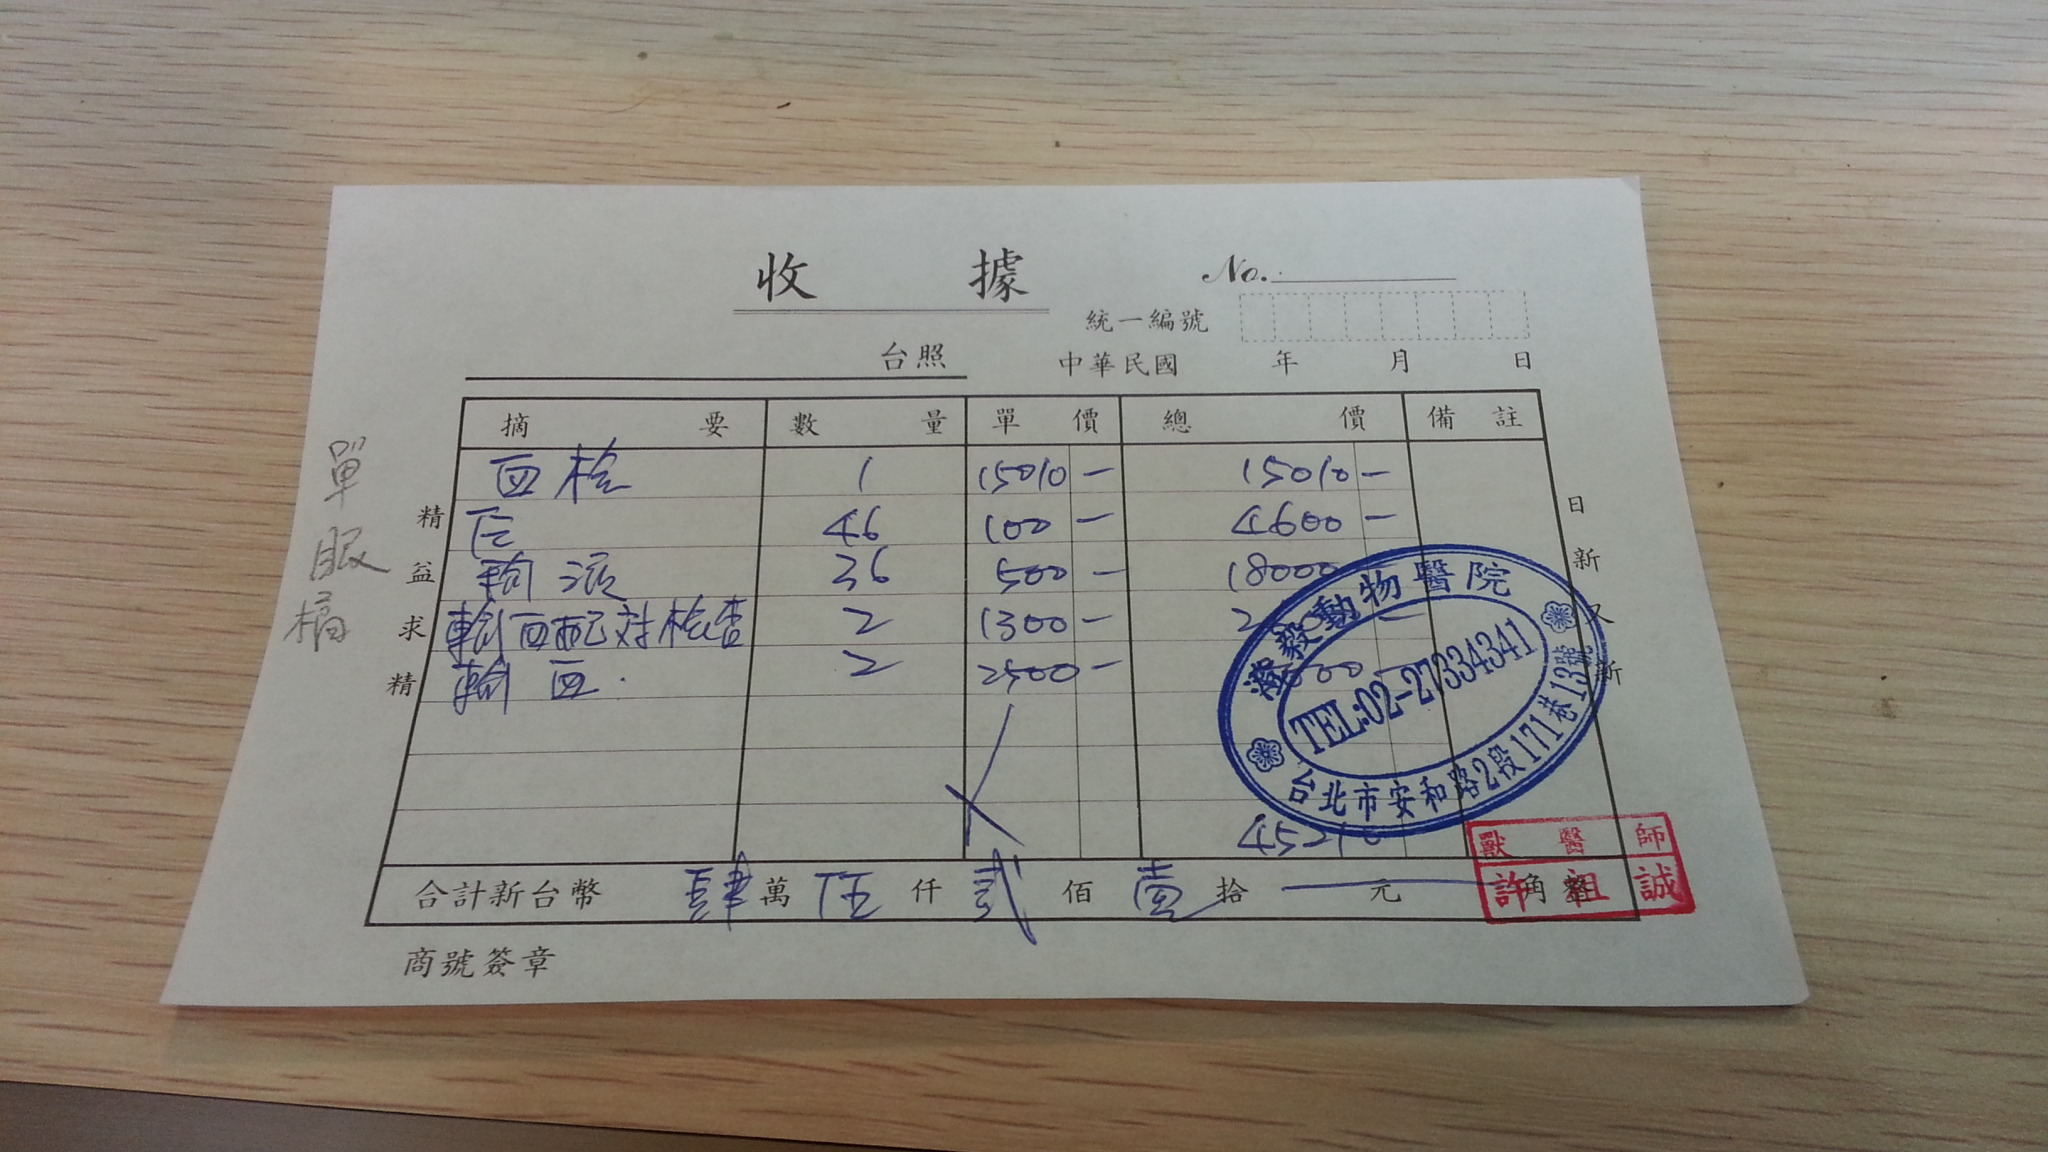 收據
No.
統一編號
台照
中華民國 年 月 日
摘要 數量 單價 總價 備註
血檢 1 15010— 15010—
46 100— 4600—
輸液 36 500— 18000
輸血配对檢查 2 1300—
輸血. 2 2500—
452
合計新台幣 肆萬伍仟貳佰壹拾 元 角
商號簽章
單眼橘
精益求精
日新又新
毅動物醫院
TEL:02-27334341
台北市安和路2段171巷13號
獸醫師
許祖誠